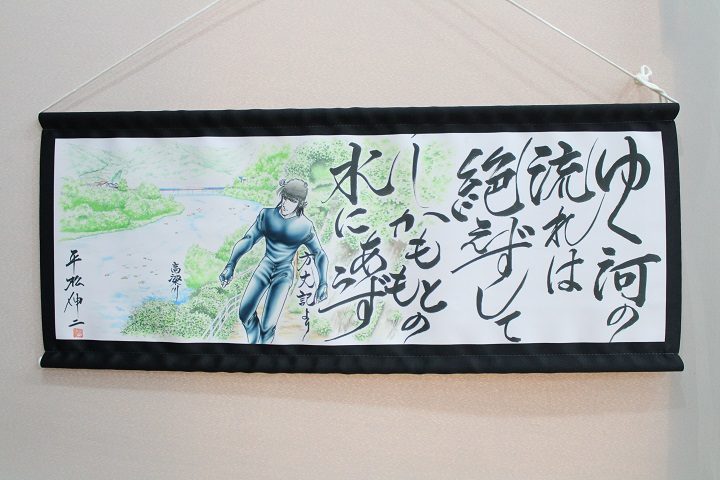 ゆく河の
流れは
絶えずして
しかももとの
水にあらず
方丈記より
高梁川
平松伸二